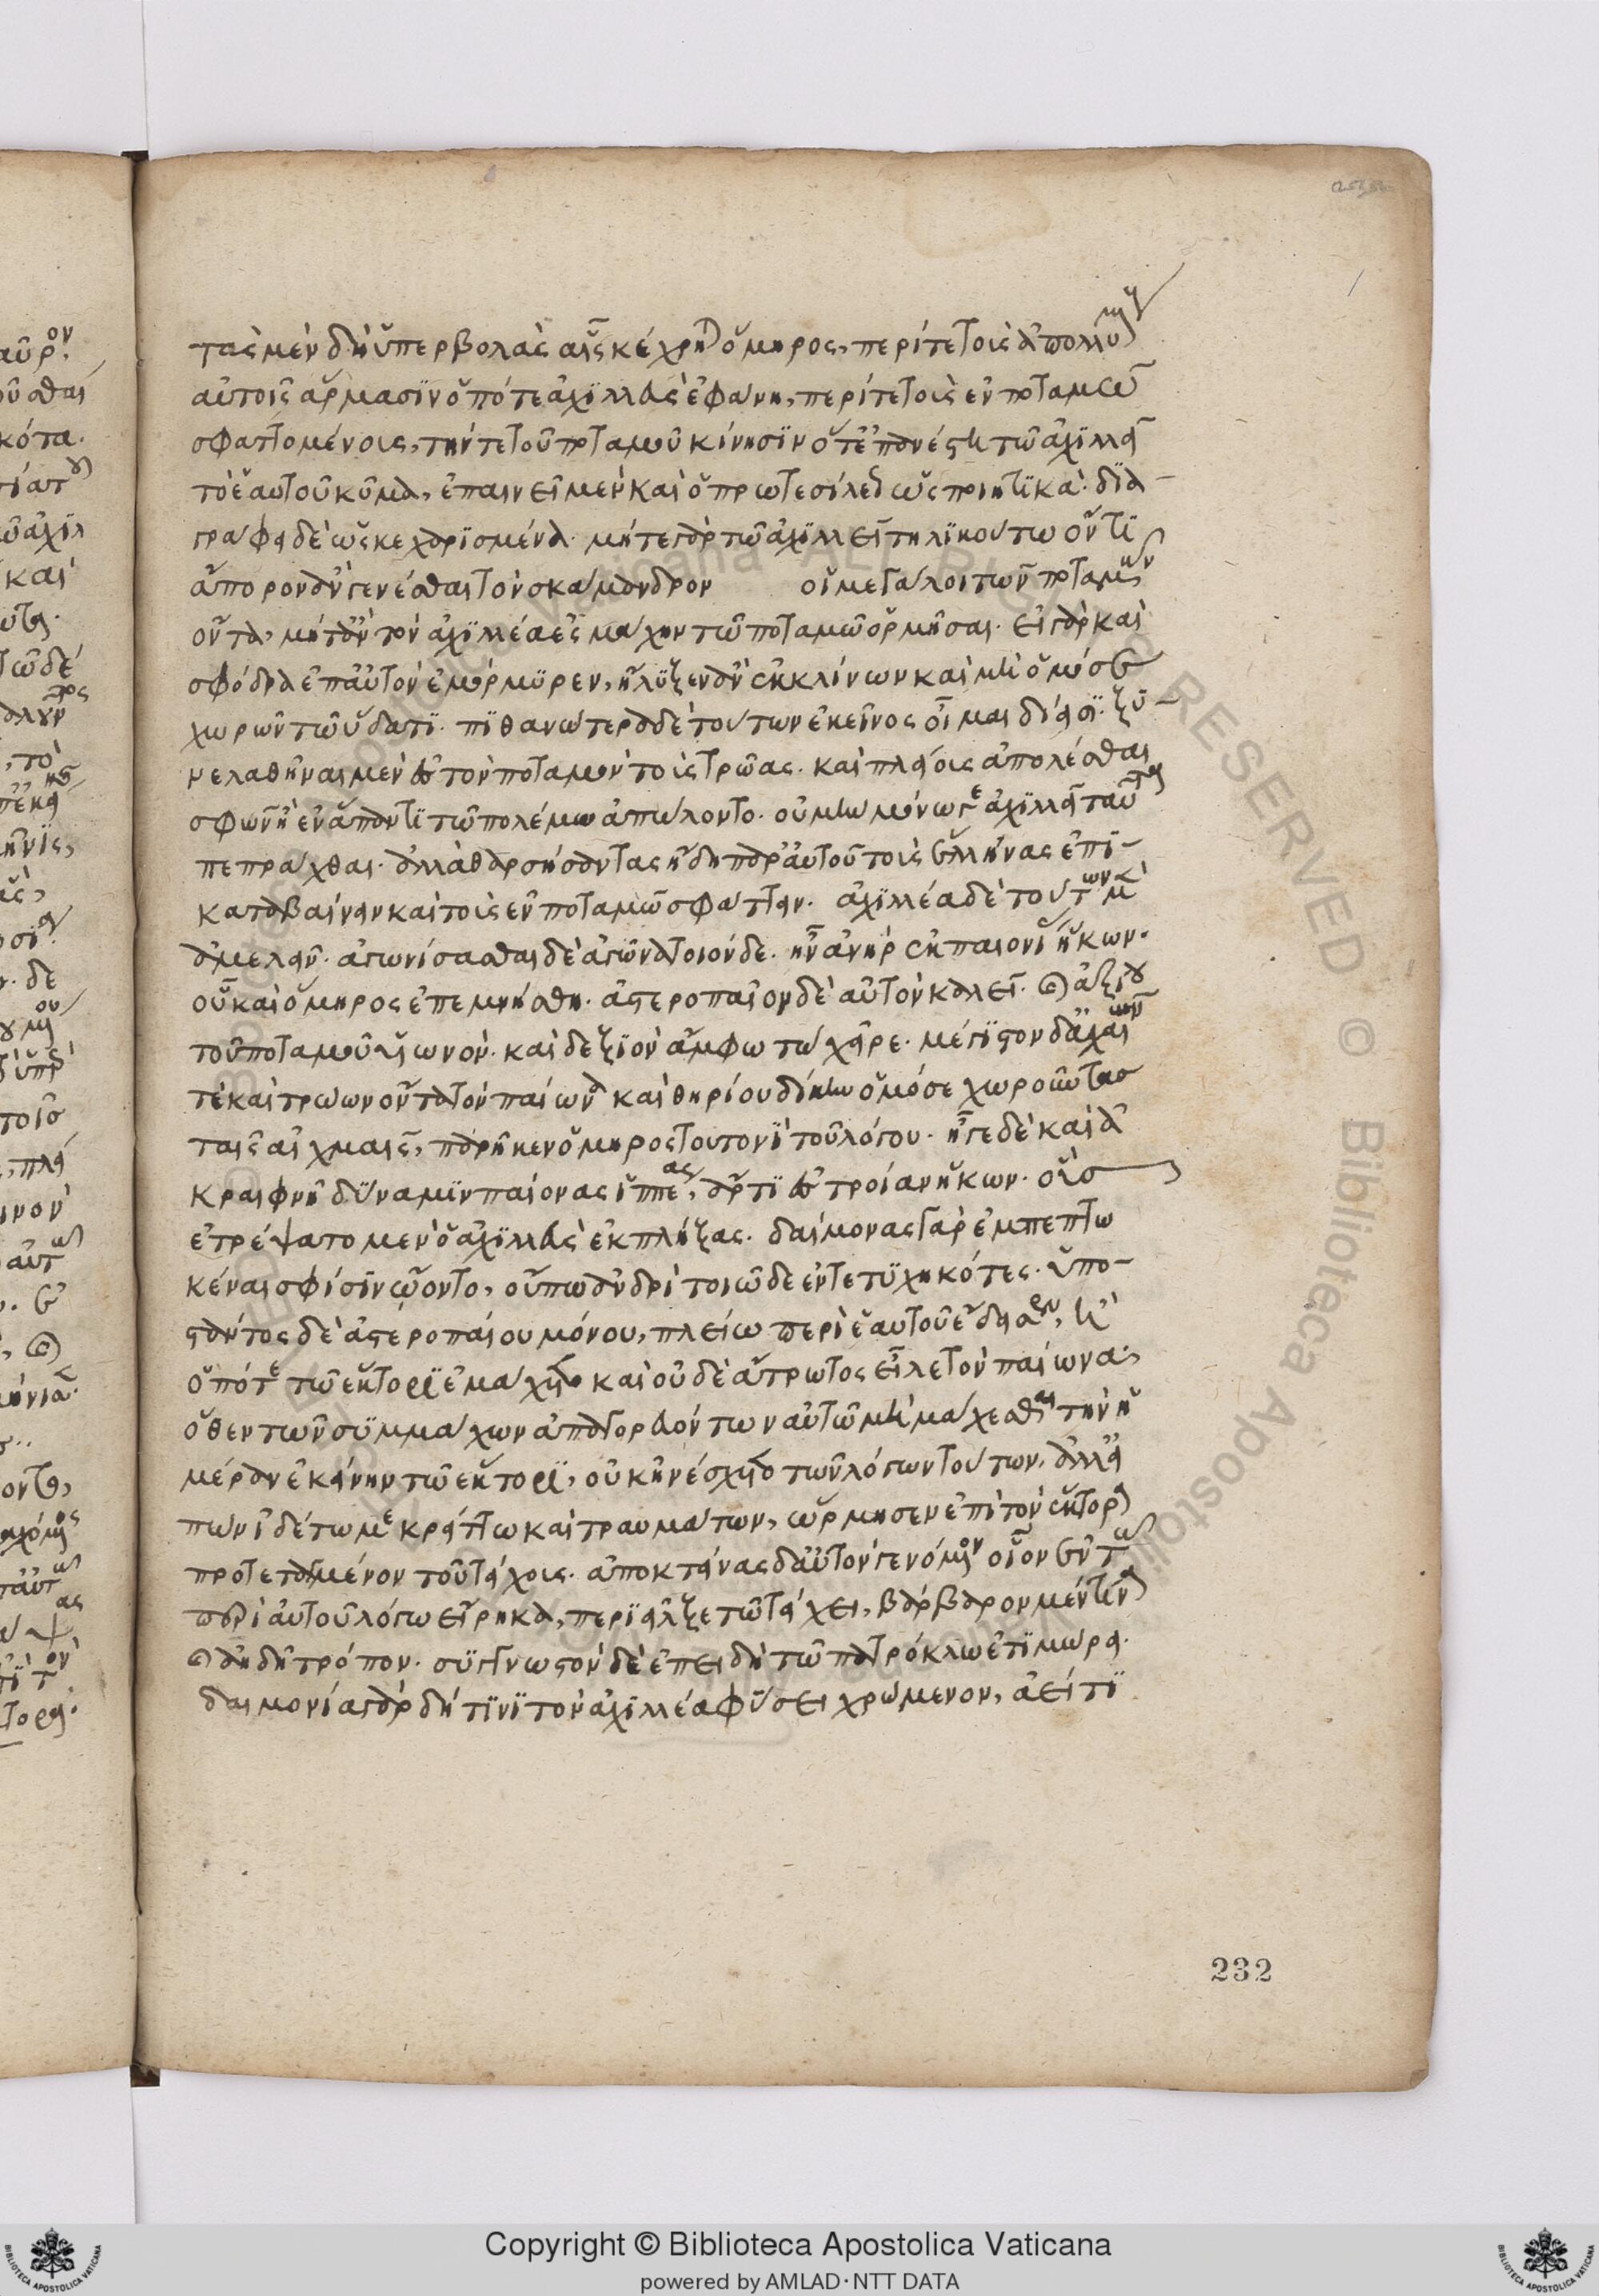 τὰς μὲν δὴ ὑπερβολὰς αἷς κέχρηται ὅμηρος, περί τε τοῖς ἀπολλυμένοις
αὐτοῖς ἅρμασιν ὁπότε ἀχιλλεὺς ἐφάνη, περί τε τοῖς ἐν ποταμῶ
σφαττομένοις, τήν τε τοῦ ποταμοῦ κίνησιν ὅτε ἐπανέστη τῶ ἀχιλλεῖ
τὸ ἑαυτοῦ κῦμα, ἐπαινεῖ μὲν καὶ ὁ πρωτεσίλεως ὡς ποιητικά· δια-
γράφει δὲ ὡς κεχαρισμένα· μήτε γὰρ τῶ ἀχιλλεῖ τηλικούτω ὄντι
ἄπορον ἂν γενέσθαι τὸν σκάμανδρον οἱ μεγάλοι τῶν ποταμῶν
ὄντα, μήτ' ἂν τὸν ἀχιλλέα ἐς μάχην τῶ ποταμῶ ὁρμῆσαι· εἰ γὰρ καὶ
σφόδρα ἐπ' αὐτὸν ἐμόρμυρεν, ἤλυξεν ἂν ἐκκλίνων καὶ μὴ ὁμόσε
χωρῶν τῶ ὕδατι· πιθανώτερα δὲ τούτων ἐκεῖνος οἶμαι δίεισι· ξυ-
νελαθῆναι μὲν ἐς τὸν ποταμὸν τοὺς τρῶας· καὶ πλείους ἀπολέσθαι
σφῶν ἢ ἐν ἅπαντι τῶ πολέμω ἀπώλοντο· οὐ μὴν μόνω γε ἀχιλλεῖ ταῦτα
πεπράχθαι· ἀλλὰ θαρσήσαντας ἤδη παρ' αὐτοῦ τοὺς ἕλληνας ἐπι-
καταβαίνειν καὶ τοὺς ἐν ποταμῶ σφάττειν· ἀχιλλέα δὲ τούτων μὲν
ἀμελεῖν· ἀγωνίσασθαι δὲ ἀγῶνα τοιόνδε· ἦν ἀνὴρ ἐκ παιονίας ἥκων·
οὗ καὶ ὅμηρος ἐπεμνήσθη· ἀστεροπαῖον δὲ αὐτὸν καλεῖ· καὶ ἀξιοῦ
τοῦ ποταμοῦ υἱωνόν· καὶ δεξιὸν ἄμφω τὼ χεῖρε· μέγιστον δ' ἀχαιῶν
τὲ καὶ τρώων ὄντα τὸν παίωνα καὶ θηρίου δίκην ὁμόσε χωροῦντα
ταῖς αἰχμαῖς, παρῆκεν ὅμηρος τουτονὶ τοῦ λόγου· ἦγε δὲ καὶ ἀ
κραιφνῆ δύναμιν παίονας ἱππέας, ἄρτι ἐς τροίαν ἥκων· οὓς
ἐτρέψατο μὲν ὁ ἀχιλλεὺς ἐκπλήξας· δαίμονας γὰρ ἐμπεπτω
κέναι σφίσιν ᾤοντο, οὔπω ἀνδρὶ τοιῶδε ἐντετυχηκότες· ὑπο-
στάντος δὲ ἀστεροπαίου μόνου, πλείω περὶ ἑαυτοῦ ἔδεισεν, ἢ
ὁπότε τῶ ἕκτορι ἐμάχετο καὶ οὐδὲ ἄτρωτος εἷλε τὸν παίωνα·
ὅθεν τῶν συμμάχων ἀπαγορευόντων αὐτῶ μὴ μάχεσθαι τὴν ἡ
μέραν ἐκείνην τῶ ἕκτορι, οὐκ ἠνέσχετο τῶν λόγων τούτων· ἀλλ' εἰ
πὼν ἰδέτω με κρείττω καὶ τραυμάτων, ὥρμησεν ἐπὶ τὸν ἕκτορα
προτεταγμένον τοῦ τείχους· ἀποκτείνας δ' αὐτὸν γενόμενον οἷον ἐν τῶ
περὶ αὐτοῦ λόγω εἴρηκα, περιεῖλξε τῶ τείχει, βάρβαρον μέν τινα
καὶ ἀηδῆ τρόπον· συγγνωστὸν δὲ ἐπειδὴ τῶ πατρόκλω ἐτιμώρει·
δαιμονία γὰρ δή τινι τὸν ἀχιλλέα φύσει χρώμενον, ἀεί τι
232
Copyright © Biblioteca Apostolica Vaticana
powered by AMLAD·NTT DATA